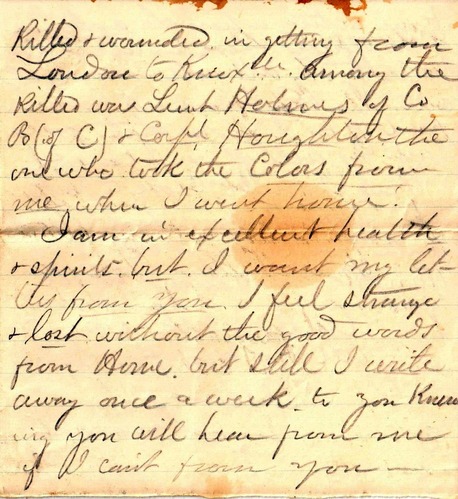 Killed & wounded in getting from
Loudon to Knoxlle. among the
Killed was Lieut Holmes of Co
B (of C) & Corpl Houghton the
one who took the Colors from
me when I went home.
I am in excellent health
& spirits. but I want my let-
ters from you. I feel strange
& lost without the good words
from Home. but still I write
away once a week to you Know
ing you will hear from me
if I cant from you —